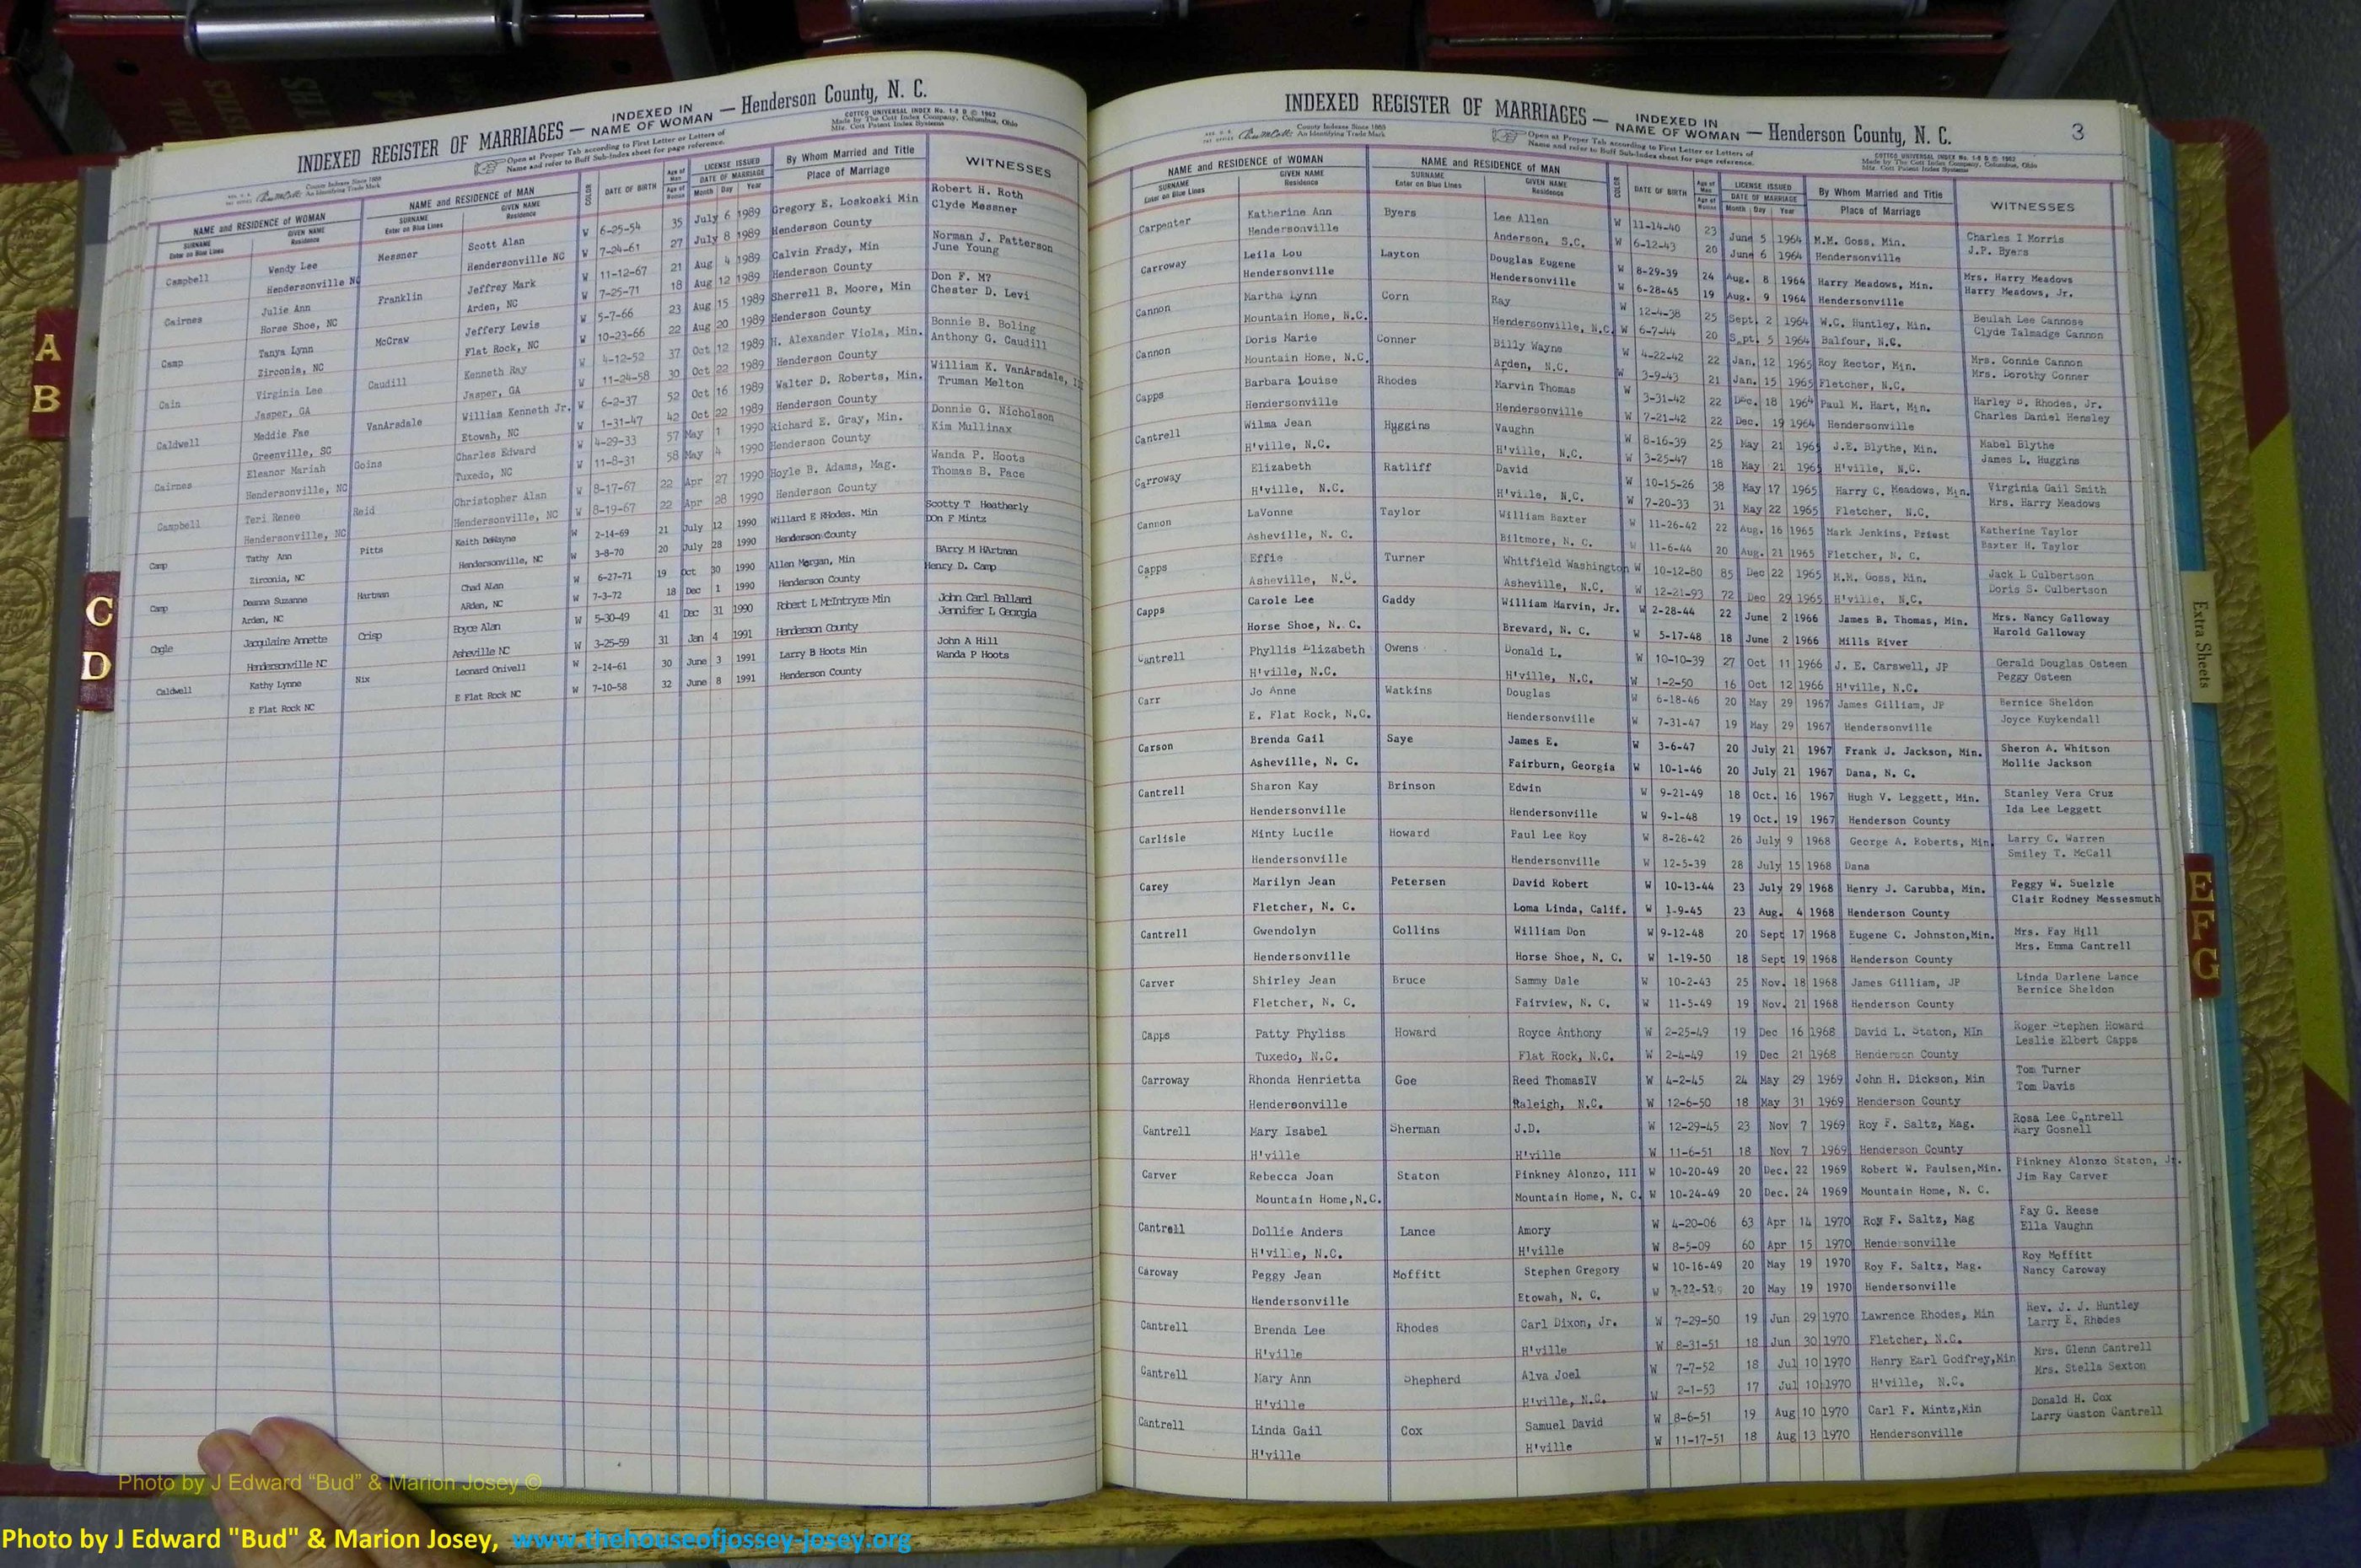 INDEXED REGISTER OF MARRIAGES — INDEXED IN NAME OF WOMAN — Henderson County, N. C.
County Indexes Since 1888
An Identifying Trade Mark
Open at Proper Tab according to First Letter or Letters of
Name and refer to Buff Sub-Index sheet for page reference.
COTTCO UNIVERSAL INDEX No. 1-8 D © 1962
Made by The Cott Index Company, Columbus, Ohio
Mfr. Cott Patent Index Systems
NAME and RESIDENCE of WOMAN NAME and RESIDENCE of MAN COLOR DATE OF BIRTH Age of Man LICENSE ISSUED By Whom Married and Title WITNESSES
SURNAME Enter on Blue Lines GIVEN NAME Residence SURNAME Enter on Blue Lines GIVEN NAME Residence Age of Woman DATE OF MARRIAGE Month Day Year Place of Marriage
Campbell Wendy Lee Messner Scott Alan W 6-25-54 35 July 6 1989 Gregory E. Loskoski Min Robert H. Roth
Hendersonville NC Hendersonville NC W 7-24-61 27 July 8 1989 Henderson County Clyde Messner
Cairnes Julie Ann Franklin Jeffrey Mark W 11-12-67 21 Aug 4 1989 Calvin Frady, Min Norman J. Patterson
Horse Shoe, NC Arden, NC W 7-25-71 18 Aug 12 1989 Henderson County June Young
Camp Tanya Lynn McCraw Jeffery Lewis W 5-7-66 23 Aug 15 1989 Sherrell B. Moore, Min Don F. M?
Zirconia, NC Flat Rock, NC W 10-23-66 22 Aug 20 1989 Henderson County Chester D. Levi
Cain Virginia Lee Caudill Kenneth Ray W 4-12-52 37 Oct 12 1989 H. Alexander Viola, Min. Bonnie B. Boling
Jasper, GA Jasper, GA W 11-24-58 30 Oct 22 1989 Henderson County Anthony G. Caudill
Caldwell Meddie Fae VanArsdale William Kenneth Jr. W 6-2-37 52 Oct 16 1989 Walter D. Roberts, Min. William K. VanArsdale, III
Greenville, SC Etowah, NC W 1-31-47 42 Oct 22 1989 Henderson County Truman Melton
Cairnes Eleanor Mariah Goins Charles Edward W 4-29-33 57 May 1 1990 Richard E. Gray, Min. Donnie G. Nicholson
Hendersonville, NC Tuxedo, NC W 11-8-31 58 May 4 1990 Henderson County Kim Mullinax
Campbell Teri Renee Reid Christopher Alan W 8-17-67 22 Apr 27 1990 Hoyle B. Adams, Mag. Wanda P. Hoots
Hendersonville, NC Hendersonville, NC W 8-19-67 22 Apr 28 1990 Henderson County Thomas B. Pace
Camp Tathy Ann Pitts Keith DeWayne W 2-14-69 21 July 12 1990 Willard E Rhodes. Min Scotty T Heatherly
Zirconia, NC Hendersonville, NC W 3-8-70 20 July 28 1990 Henderson County Don F Mintz
Camp Deanna Suzanne Hartman Chad Alan W 6-27-71 19 Oct 30 1990 Allen Morgan, Min BArry M HArtman
Arden, NC ARden, NC W 7-3-72 18 Dec 1 1990 Henderson County Henry D. Camp
Cagle Jacqulaine Annette Crisp Boyce Alan W 5-30-49 41 Dec 31 1990 Robert L McIntryre Min John Carl Ballard
Hendersonville NC Asheville NC W 3-25-59 31 Jan 4 1991 Henderson County Jennifer L Georgia
Caldwell Kathy Lynne Nix Leonard Onivell W 2-14-61 30 June 3 1991 Larry B Hoots Min John A Hill
E Flat Rock NC E Flat Rock NC W 7-10-58 32 June 8 1991 Henderson County Wanda P Hoots
INDEXED REGISTER OF MARRIAGES — INDEXED IN NAME OF WOMAN — Henderson County, N. C. 3
County Indexes Since 1888
An Identifying Trade Mark
Open at Proper Tab according to First Letter or Letters of
Name and refer to Buff Sub-Index sheet for page reference.
COTTCO UNIVERSAL INDEX No. 1-8 D © 1962
Made by The Cott Index Company, Columbus, Ohio
Mfr. Cott Patent Index Systems
NAME and RESIDENCE OF WOMAN NAME and RESIDENCE OF MAN COLOR DATE OF BIRTH Age of Man LICENSE ISSUED By Whom Married and Title WITNESSES
SURNAME Enter on Blue Lines GIVEN NAME Residence SURNAME Enter on Blue Lines GIVEN NAME Residence Age of Woman DATE OF MARRIAGE Month Day Year Place of Marriage
Carpenter Katherine Ann Byers Lee Allen W 11-14-40 23 June 5 1964 M.M. Goss, Min. Charles I Morris
Hendersonville Anderson, S.C. W 6-12-43 20 June 6 1964 Hendersonville J.P. Byers
Carroway Leila Lou Layton Douglas Eugene W 8-29-39 24 Aug. 8 1964 Harry Meadows, Min. Mrs. Harry Meadows
Hendersonville Hendersonville W 6-28-45 19 Aug. 9 1964 Hendersonville Harry Meadows, Jr.
Cannon Martha Lynn Corn Ray W 12-4-38 25 Sept. 2 1964 W.C. Huntley, Min. Beulah Lee Cannose
Mountain Home, N.C. Hendersonville, N.C. W 6-7-44 20 Sept. 5 1964 Balfour, N.C. Clyde Talmadge Cannon
Cannon Doris Marie Conner Billy Wayne W 4-22-42 22 Jan. 12 1965 Roy Rector, Min. Mrs. Connie Cannon
Mountain Home, N.C. Arden, N.C. W 3-9-43 21 Jan. 15 1965 Fletcher, N.C. Mrs. Dorothy Conner
Capps Barbara Louise Rhodes Marvin Thomas W 3-31-42 22 Dec. 18 1964 Paul M. Hart, Min. Harley D. Rhodes, Jr.
Hendersonville Hendersonville W 7-21-42 22 Dec. 19 1964 Hendersonville Charles Daniel Hensley
Cantrell Wilma Jean Huggins Vaughn W 8-16-39 25 May 21 1965 J.E. Blythe, Min. Mabel Blythe
H'ville, N.C. H'ville, N.C. W 3-25-47 18 May 21 1965 H'ville, N.C. James L. Huggins
Carroway Elizabeth Ratliff David W 10-15-26 38 May 17 1965 Harry C. Meadows, Min. Virginia Gail Smith
H'ville, N.C. H'ville, N.C. W 7-20-33 31 May 22 1965 Fletcher, N.C. Mrs. Harry Meadows
Cannon LaVonne Taylor William Baxter W 11-26-42 22 Aug. 16 1965 Mark Jenkins, Priest Katherine Taylor
Asheville, N. C. Biltmore, N. C. W 11-6-44 20 Aug. 21 1965 Fletcher, N. C. Baxter H. Taylor
Capps Effie Turner Whitfield Washington W 10-12-80 85 Dec 22 1965 M.M. Goss, Min. Jack L Culbertson
Asheville, N.C. Asheville, N.C. W 12-21-93 72 Dec 29 1965 H'ville, N.C. Doris S. Culbertson
Capps Carole Lee Gaddy William Marvin, Jr. W 2-28-44 22 June 2 1966 James B. Thomas, Min. Mrs. Nancy Galloway
Horse Shoe, N. C. Brevard, N. C. W 5-17-48 18 June 2 1966 Mills River Harold Galloway
Cantrell Phyllis Elizabeth Owens Donald L. W 10-10-39 27 Oct 11 1966 J. E. Carswell, JP Gerald Douglas Osteen
H'ville, N.C. H'ville, N.C. W 1-2-50 16 Oct 12 1966 H'ville, N.C. Peggy Osteen
Carr Jo Anne Watkins Douglas W 6-18-46 20 May 29 1967 James Gilliam, JP Bernice Sheldon
E. Flat Rock, N.C. Hendersonville W 7-31-47 19 May 29 1967 Hendersonville Joyce Kuykendall
Carson Brenda Gail Saye James E. W 3-6-47 20 July 21 1967 Frank J. Jackson, Min. Sheron A. Whitson
Asheville, N. C. Fairburn, Georgia W 10-1-46 20 July 21 1967 Dana, N. C. Mollie Jackson
Cantrell Sharon Kay Brinson Edwin W 9-21-49 18 Oct. 16 1967 Hugh V. Leggett, Min. Stanley Vera Cruz
Hendersonville Hendersonville W 9-1-48 19 Oct. 19 1967 Henderson County Ida Lee Leggett
Carlisle Minty Lucile Howard Paul Lee Roy W 8-28-42 26 July 9 1968 George A. Roberts, Min. Larry C. Warren
Hendersonville Hendersonville W 12-5-39 28 July 15 1968 Dana Smiley T. McCall
Carey Marilyn Jean Petersen David Robert W 10-13-44 23 July 29 1968 Henry J. Carubba, Min. Peggy W. Suelzle
Fletcher, N. C. Loma Linda, Calif. W 1-9-45 23 Aug. 4 1968 Henderson County Clair Rodney Messesmuth
Cantrell Gwendolyn Collins William Don W 9-12-48 20 Sept 17 1968 Eugene C. Johnston,Min. Mrs. Fay Hill
Hendersonville Horse Shoe, N. C. W 1-19-50 18 Sept 19 1968 Henderson County Mrs. Emma Cantrell
Carver Shirley Jean Bruce Sammy Dale W 10-2-43 25 Nov. 18 1968 James Gilliam, JP Linda Darlene Lance
Fletcher, N. C. Fairview, N. C. W 11-5-49 19 Nov. 21 1968 Henderson County Bernice Sheldon
Capps Patty Phyliss Howard Royce Anthony W 2-25-49 19 Dec 16 1968 David L. Staton, MIn Roger Stephen Howard
Tuxedo, N.C. Flat Rock, N.C. W 2-4-49 19 Dec 21 1968 Henderson County Leslie Elbert Capps
Carroway Rhonda Henrietta Goe Reed ThomasIV W 4-2-45 24 May 29 1969 John H. Dickson, Min Tom Turner
Hendersonville Raleigh, N.C. W 12-6-50 18 May 31 1969 Henderson County Tom Davis
Cantrell Mary Isabel Sherman J.D. W 12-29-45 23 Nov 7 1969 Roy F. Saltz, Mag. Rosa Lee Cantrell
H'ville H'ville W 11-6-51 18 Nov 7 1969 Henderson County Mary Gosnell
Carver Rebecca Joan Staton Pinkney Alonzo, III W 10-20-49 20 Dec. 22 1969 Robert W. Paulsen,Min. Pinkney Alonzo Staton, Jr.
Mountain Home,N.C. Mountain Home, N. C. W 10-24-49 20 Dec. 24 1969 Mountain Home, N. C. Jim Ray Carver
Cantrell Dollie Anders Lance Amory W 4-20-06 63 Apr 14 1970 Roy F. Saltz, Mag Fay G. Reese
H'ville, N.C. H'ville W 8-5-09 60 Apr 15 1970 Hendersonville Ella Vaughn
Caroway Peggy Jean Moffitt Stephen Gregory W 10-16-49 20 May 19 1970 Roy F. Saltz, Mag. Roy Moffitt
Hendersonville Etowah, N. C. W 20 May 19 1970 Hendersonville Nancy Caroway
Cantrell Brenda Lee Rhodes Carl Dixon, Jr. W 7-29-50 19 Jun 29 1970 Lawrence Rhodes, Min Rev. J. J. Huntley
H'ville H'ville W 8-31-51 18 Jun 30 1970 Fletcher, N.C. Larry E. Rhodes
Cantrell Mary Ann Shepherd Alva Joel W 7-7-52 18 Jul 10 1970 Henry Earl Godfrey,Min Mrs. Glenn Cantrell
H'ville H'ville, N.C. W 2-1-53 17 Jul 10 1970 H'ville, N.C. Mrs. Stella Sexton
Cantrell Linda Gail Cox Samuel David W 8-6-51 19 Aug 10 1970 Carl F. Mintz,Min Donald H. Cox
H'ville H'ville W 11-17-51 18 Aug 13 1970 Hendersonville Larry Gaston Cantrell
A
B
C
D
Extra Sheets
E
F
G
Photo by J Edward “Bud” & Marion Josey ©
Photo by J Edward "Bud" & Marion Josey, www.thehouseofjossey-josey.org